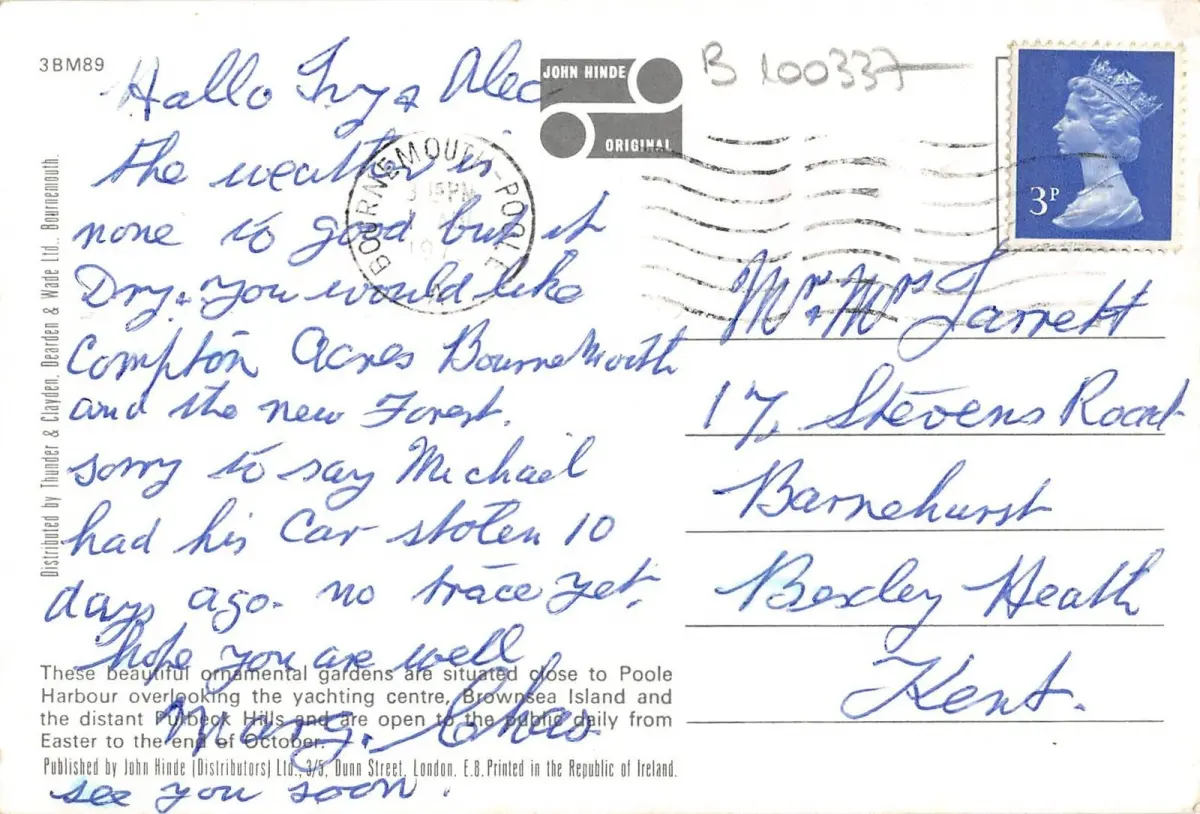 3BM89
Hallo Ivy & Alec
The weather is
none to good but it
Dry. you would like
Compton Acres Bournemouth
and the new Forest.
sorry to say Michael
had his Car stolen 10
days ago. no trace yet.
hope you are well
Marg. Chas
see you soon.
These beautiful ornamental gardens are situated close to Poole
Harbour overlooking the yachting centre, Brownsea Island and
the distant Purbeck Hills and are open to the public daily from
Easter to the end of October.
Published by John Hinde (Distributors) Ltd., 3/5, Dunn Street, London. E.8. Printed in the Republic of Ireland.
Distributed by Thunder & Clayden, Dearden & Wade Ltd., Bournemouth.
JOHN HINDE
ORIGINAL
BOURNEMOUTH-POOLE
PM
B 100337
3P
Mr & Mrs Jarrett
17, Stevens Road
Barnehurst
Bexley Heath
Kent.